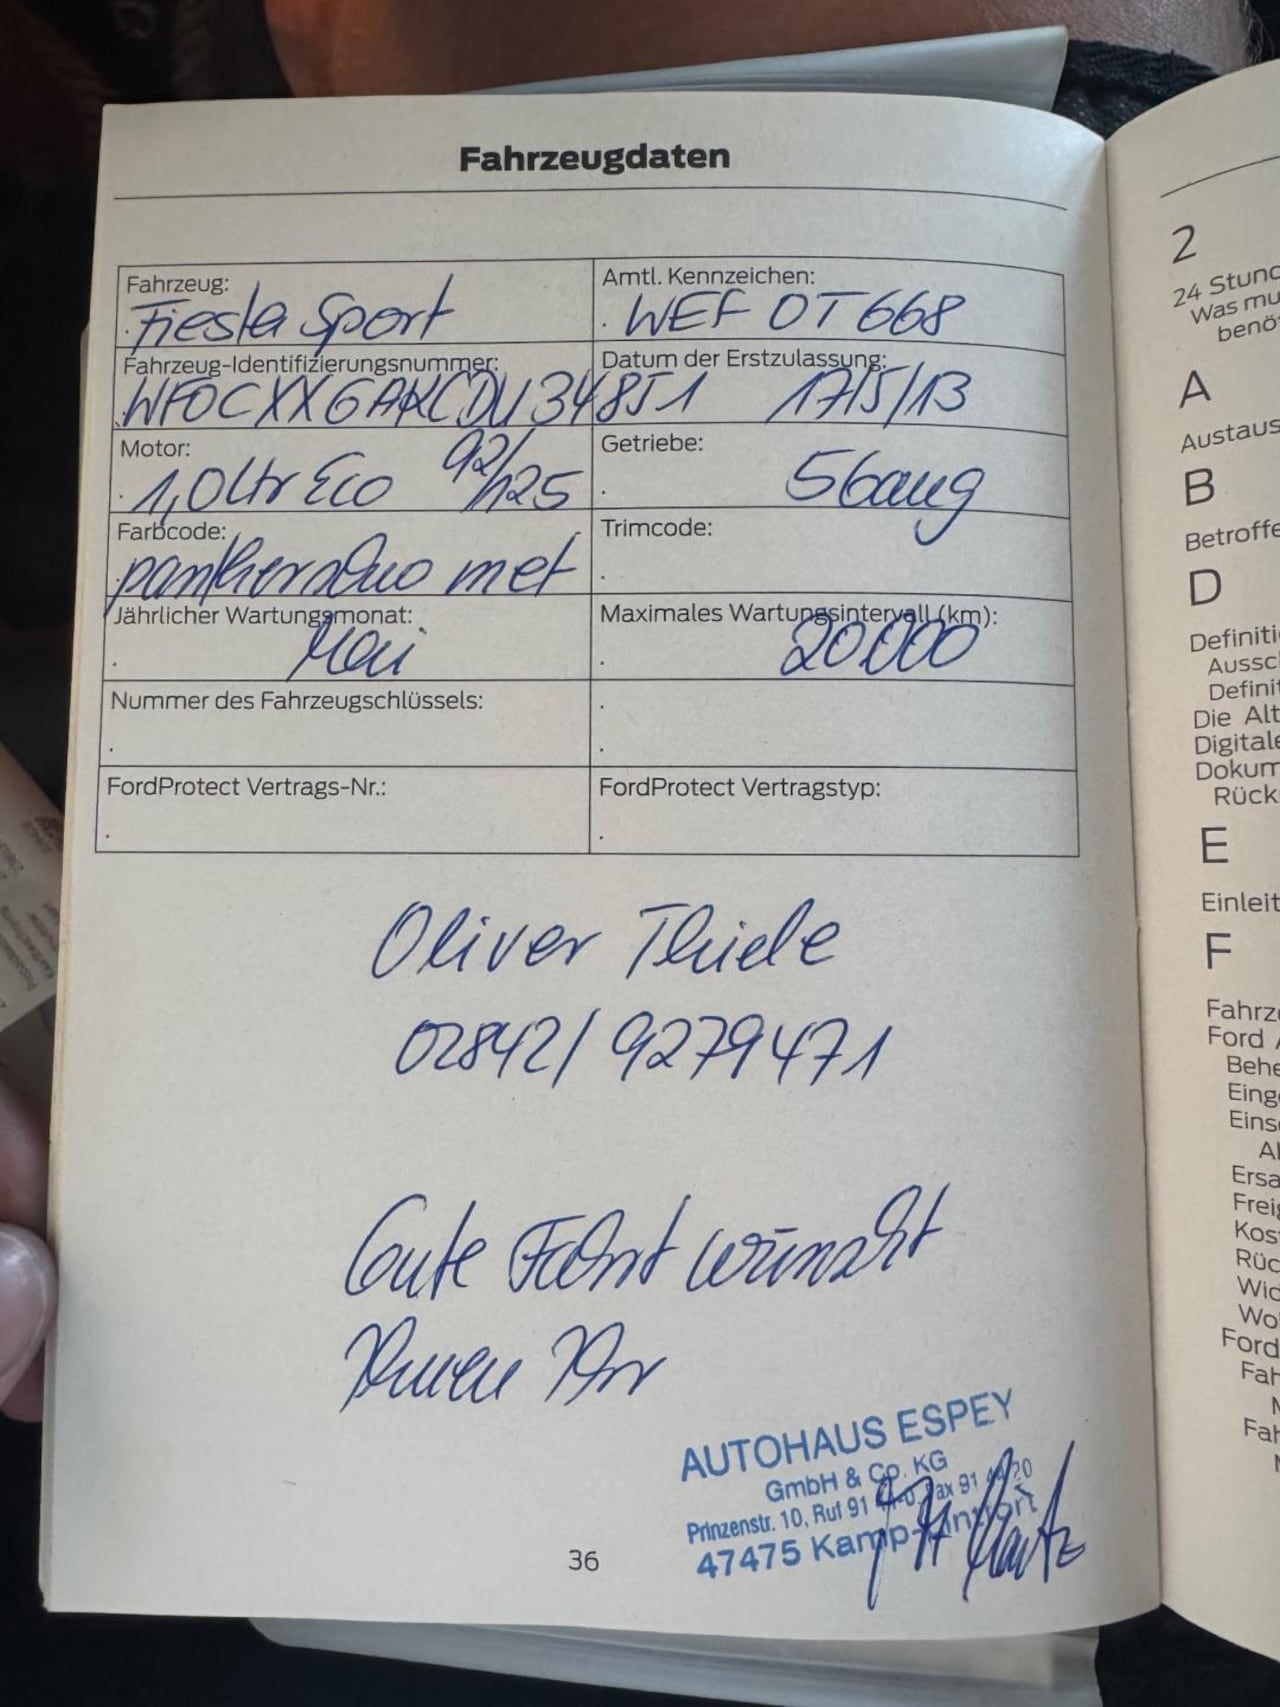 Fahrzeugdaten
Fahrzeug: Amtl. Kennzeichen:
Fiesta Sport WEF OT 668
Fahrzeug-Identifizierungsnummer: Datum der Erstzulassung:
WF0CXXGAKCDU34851 17/5/13
Motor: Getriebe:
1,0 ltr Eco 92/125 5Gang
Farbcode: Trimcode:
met
Jährlicher Wartungsmonat: Maximales Wartungsintervall (km):
Mai 20.000
Nummer des Fahrzeugschlüssels:
FordProtect Vertrags-Nr.: FordProtect Vertragstyp:
Oliver Thiele
02842/9279471
Gute Fahrt wünscht
Ihnen Ihr
AUTOHAUS ESPEY
GmbH & Co. KG
Prinzenstr. 10, Ruf 91
47475 Kamp-Lintfort
36
2
24 Stund
Was mu
benö
A
Austaus
B
Betroffe
D
Definiti
Aussch
Definit
Die Alt
Digitale
Dokum
Rück
E
Einleit
F
Fahrz
Ford
Behe
Eing
Eins
Ersa
Frei
Kos
Rüc
Wid
Wo
Ford
Fah
Fah